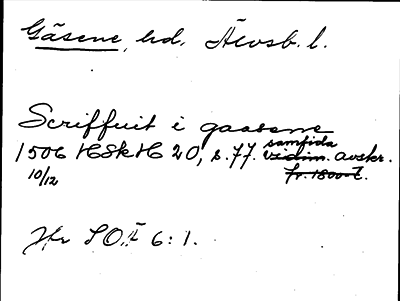 Gäsene, hd. Älvsb. l.
Scriffuit i gaasene
1506 HSkH 20, s. 77. samtida vidim. avskr.
10/12 fr. 1800-t.
Jfr SOÄ 6: 1.